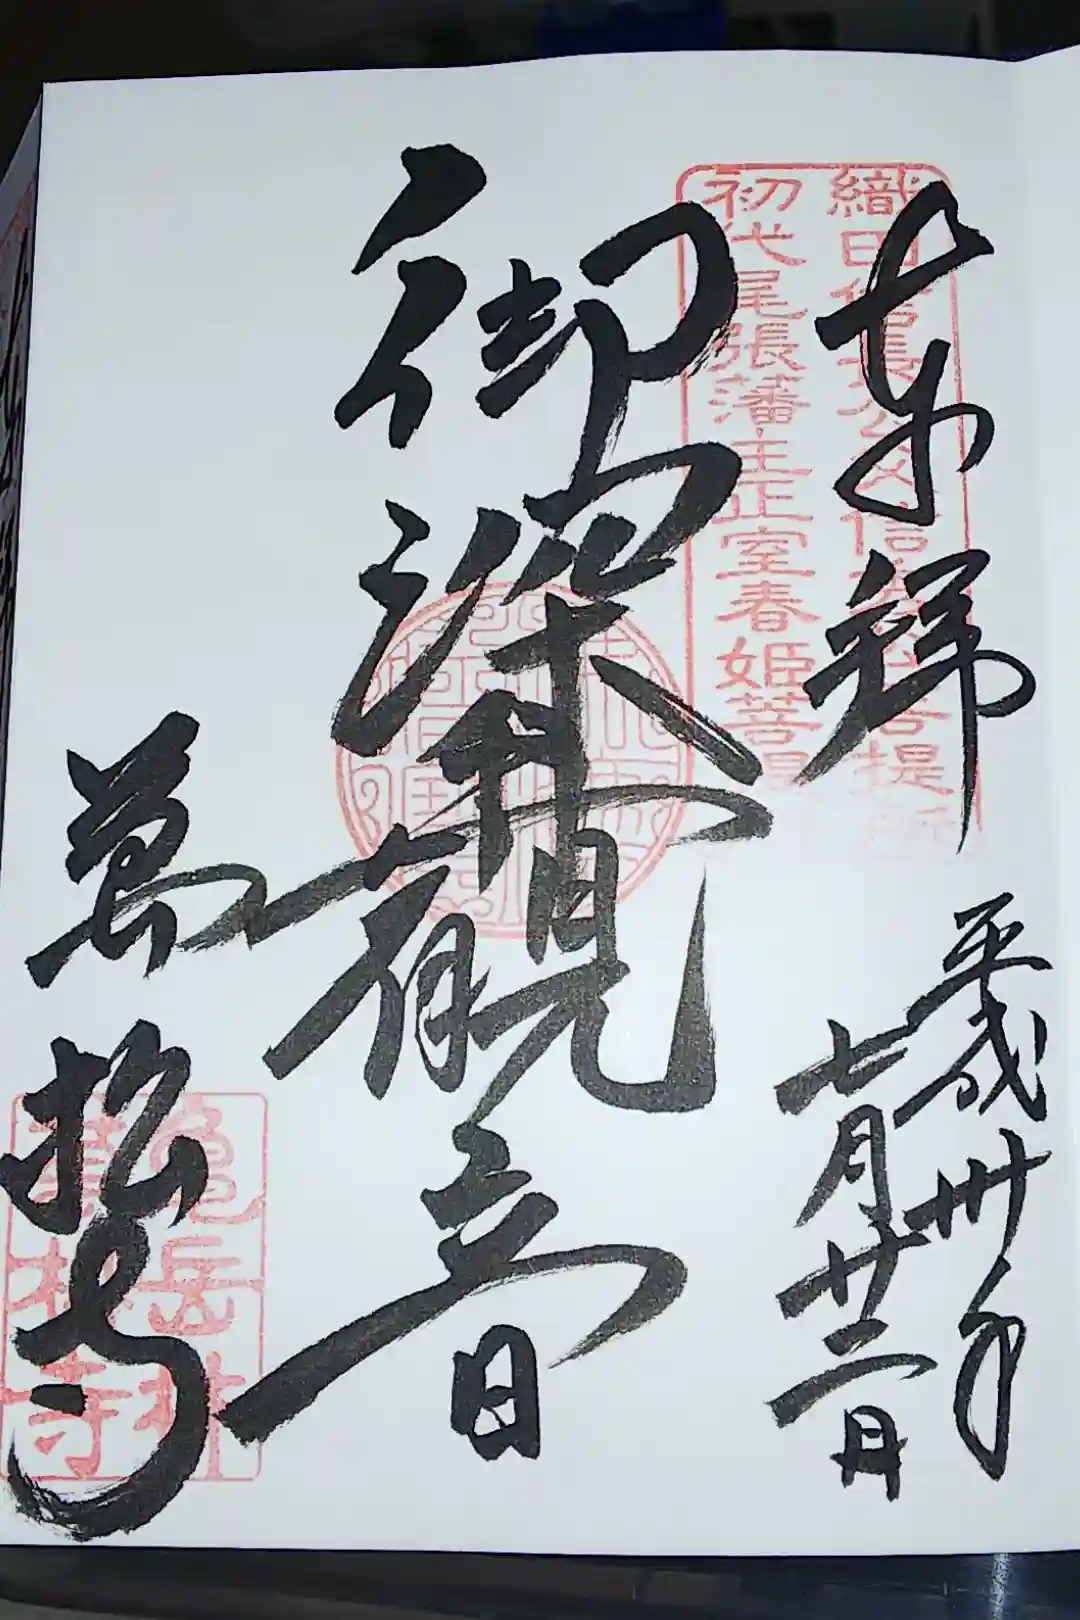 奉拝
平成卅年
七月廿二日
織田信長公父信秀公菩提所
初代尾張藩主正室春姫菩提
御深井観音
萬松寺
亀岳林
萬松寺